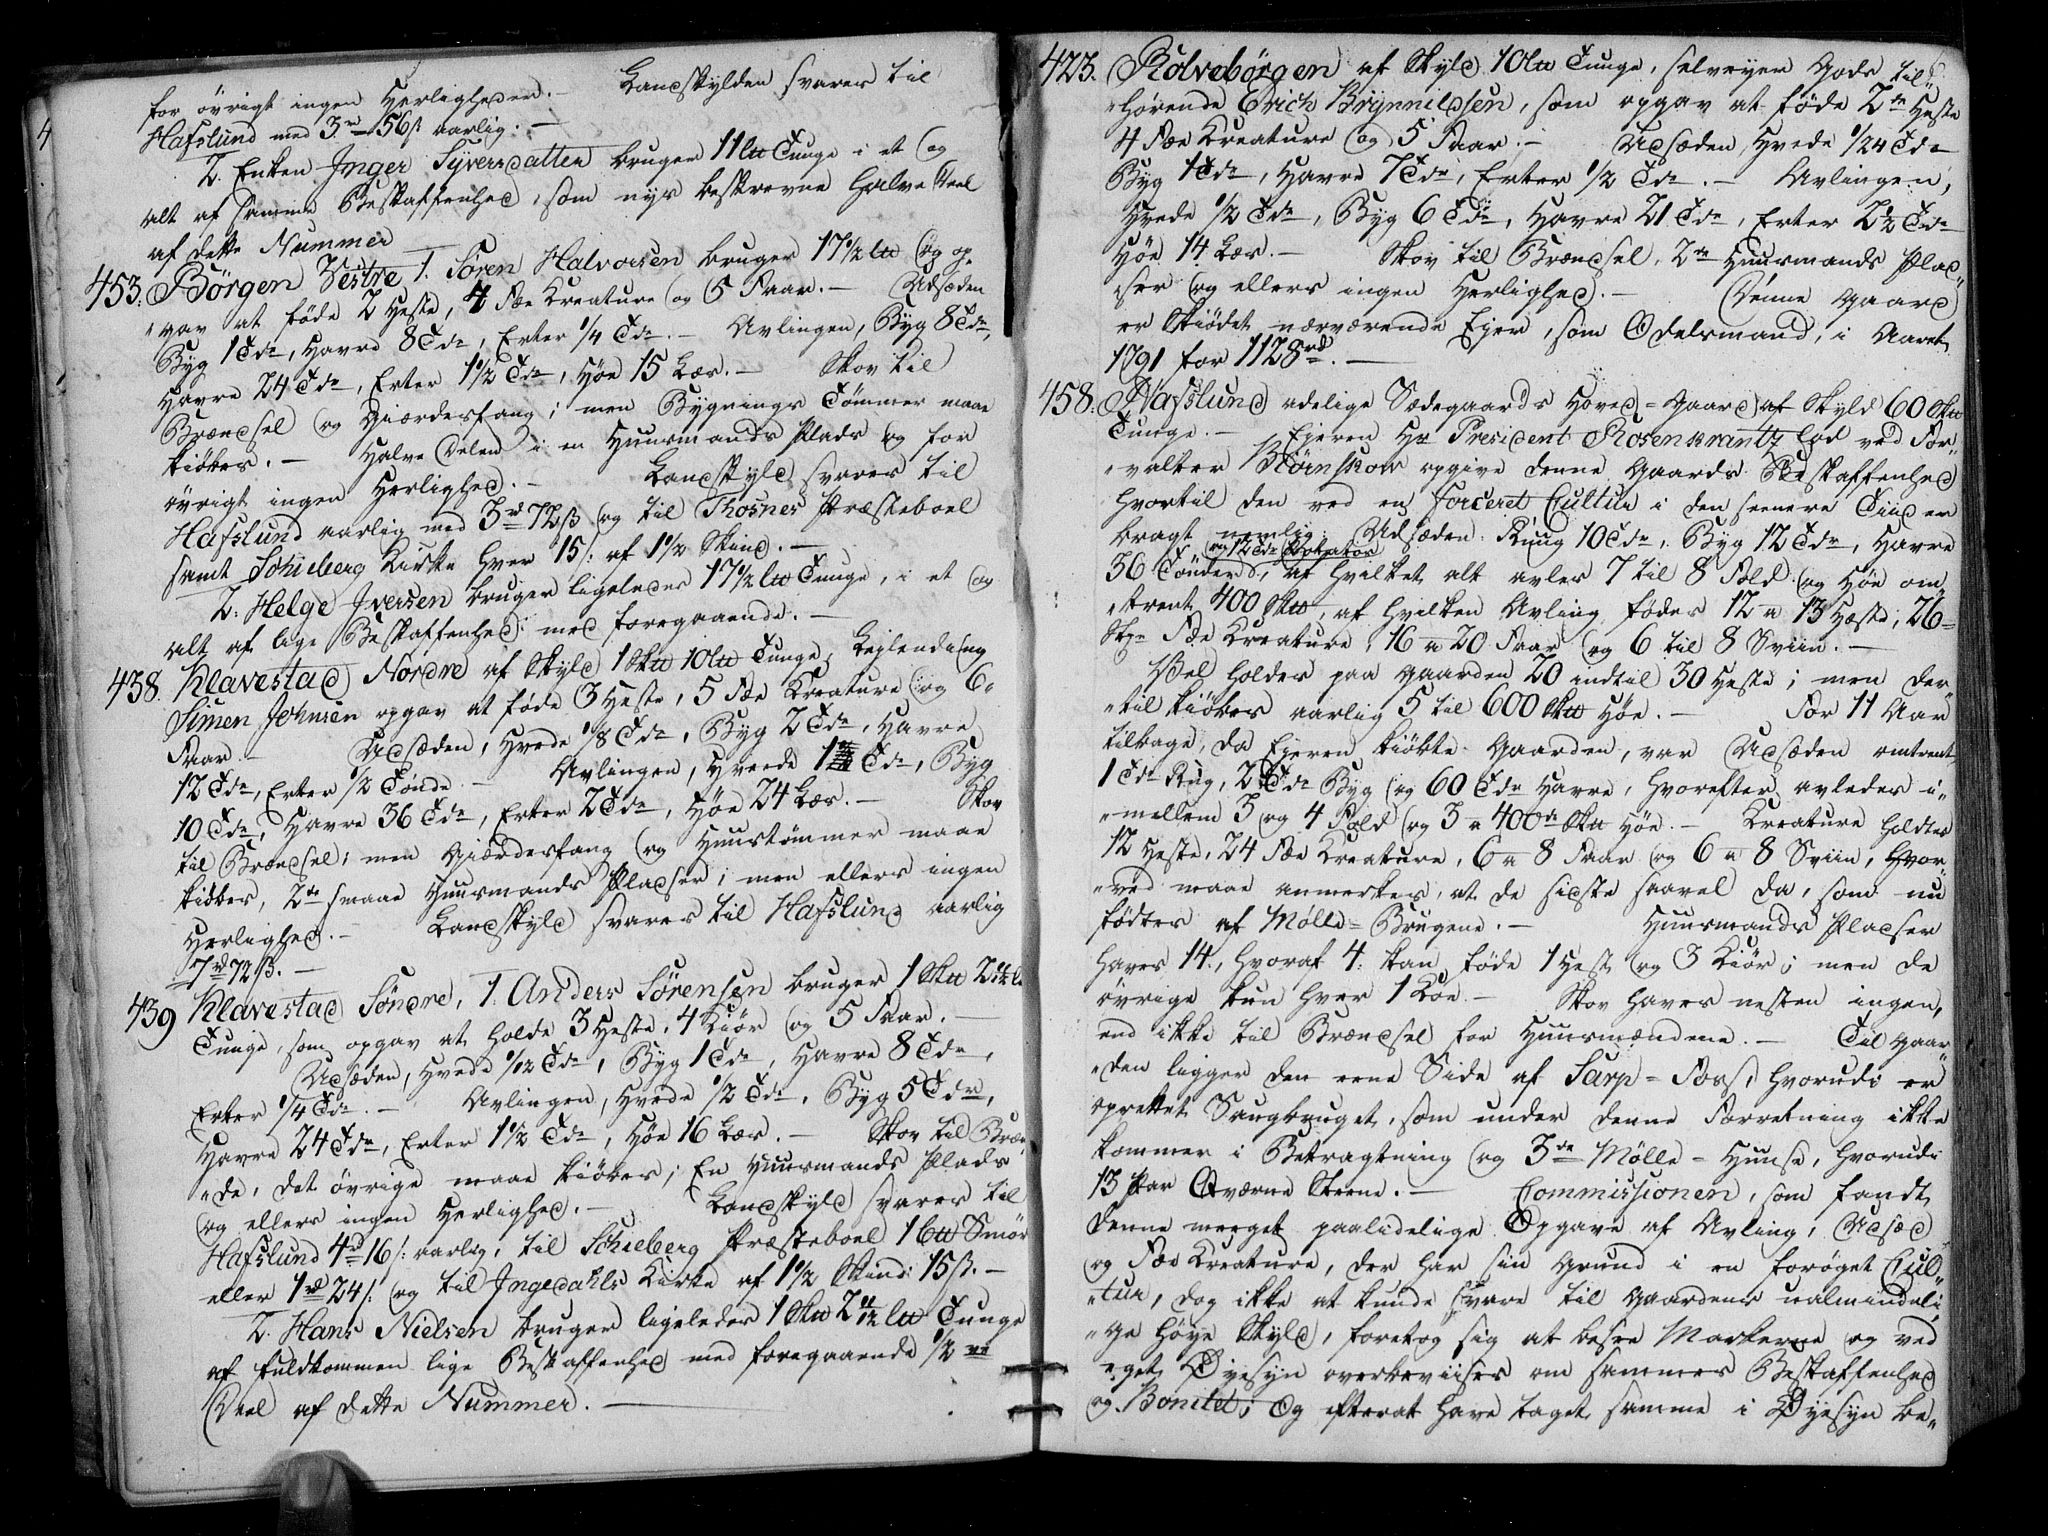 for övrigt ingen Herligheder. – Landskylden svares til
Hafslund med 3 rd 56 s aarlig. –
2. Enken Inger Syversdatter bruger 11 lu Tunge i et og
alt af samme Beskaffenhed, som nys beskrevne halve Deel
af dette Nummer
453. Börgen Vestre 1. Sören Halvorsen bruger 17 1/2 lu og op-
"gav at föde 2 Heste, 4 Fæe Kreature og 5 Faar. – Udsæden
Byg 1 Tde, Havre 8 Tde, Erter 1/4 Tde. – Avlingen, Byg 8 Tde,
Havre 24 Tde, Erter 1 1/2 Tde, Höe 15 Læs. – Skov til
Brændsel og Giærdesfang; men Bygnings Tömmer maae
kiöbes. – Halve Delen i en Huusmands Plads og for
övrigt ingen Herlighed. – Landskyld svares til
Hafslund aarlig med 3 rd 72 s og til Thosnes Præsteboel
samt Schieberg Kirke hver 15 s: af 1 1/2 Skind. –
2. Helge Iversen bruger ligeledes 17 1/2 lu Tunge, i et og
alt af lige Beskaffenhed med foregaaende. –
438. Klavestad Nordre af Skyld 1 Sku 10 lu Tunge, Leilending
Simen Johnsen opgav at föde 3 Heste, 5 Fæe Kreature og 6
Faar – Udsæden, Hvede 1/8 Tde, Byg 2 Tde, Havre
12 Tde, Erter 1/2 Tönde. – Avlingen, Hvede 1 Tde, Byg
10 Tde, Havre 36 Tde, Erter 2 Tde, Höe 24 Læs. – Skov
til Brændsel; men Giærdesfang og Huustömmer maae
kiöbes, 2de smaae Huusmands Pladser; men ellers ingen
Herlighed. – Landskyld svares til Hafslund aarlig
7 rd 72 s. –
439 Klavestad Söndre, 1. Anders Sörensen bruger 1 Sku 2 1/2 l
Tunge, som opgav at holde 3 Heste, 4 Kiör og 5 Faar. –
Udsæden, Hvede 1/12 Tde, Byg 1 Tde, Havre 8 Tde,
Erter 1/4 Tde. – Avlingen, Hvede 1/2 Tde, Byg 5 Tde,
Havre 24 Tde, Erter 1 1/2 Tde, Höe 16 Læs. – Skov til Bræn
"de, det övrige maae kiöbes; En Huusmands Plads
og ellers ingen Herlighed. – Landskyld svares til
Hafslund 4 rd 16 s: aarlig, til Schieberg Præsteboel 1 bu Smör
eller 1 rd 24 s: og til Ingedahls Kirke af 1 1/2 Skind: 15 s. –
2. Hans Nielsen bruger ligeledes 1 Sku 2 1/2 lu Tunge
af fuldkommen lige Beskaffenhed med foregaaende 1/2 ve
Deel af dette Nummer. –
423. Rolvsbörgen af Skyld 10 lu Tunge, selveyer Gods til
"hörende Erich Brynnildsen, som opgav at föde 2de Heste
4 Fæe Kreature og 5 Faar. – Udsæden, Hvede 1/24 Tde
Byg 1 Tde, Havre 7 Tde, Erter 1/2 Tde. – Avlingen,
Hvede 1/2 Tde, Byg 6 Tde, Havre 21 Tde, Erter 2 1/2 Tde
Höe 14 Læs. – Skov til Brændsel, 2de Huusmands Plad
"ser og ellers ingen Herlighed. – Denne Gaard
er Skiödet nærværende Ejer, som Odelsmand, i Aaret
1791 for 1128 rd. –
458. Hafslund adelige Sædegaards Hoved-Gaard af Skyld 60 Sku
Tunge. – Ejeren Hr President Rosenkrantz lod ved For
"valter Biörnskow opgive denne Gaards Beskaffenhed
hvortil den ved en forceret Cultur i den seenere Tiid er
bragt nemlig: Udsæden Ruug 10 Tde, Byg 12 Tde, Havre
og 12 Tde Potatos
36 Tönder, af hvilket alt avles 7 til 8 Fold og Höe om
"trent 400 Sku, af hvilken Avling födes 12 a 13 Heste, 26
Stk Fæe Kreature, 16 a 20 Faar og 6 til 8 Sviin. –
Vel holdes paa Gaarden 20 indtil 30 Heste; men der
"til kiöbes aarlig 5 til 600 Sku Höe. – For 11 Aar
tilbage, da Ejeren kiöbte Gaarden, var Udsæden omtrent
1 Tde Rug, 2 Tde Byg og 60 Tde Havre, hvorefter avledes i-
"mellem 3 og 4 Fold og 3 a 400de Sku Höe. – Kreature holdtes
12 Heste, 24 Fæe Kreature, 6 a 8 Faar og 6 a 8 Sviin, hvor
"ved maae anmerkes, at de sidste saavel da, som nu
födtes af Mölle-Brugene. – Huusmands Pladser
haves 14, hvoraf 4: kan föde 1 Hest og 3 Kiör; men de
övrige kun hver 1 Koe. – Skov haves nesten ingen,
end ikke til Brændsel for Huusmændene. – Til Gaar
"den ligger den eene Side af Sarp-Foss, hvorudi er
oprettet Saugbruget, som under denne Forretning ikke
kommer i Betragtning og 3de Mölle-Huuse, hvorudi
13 Par Qværne Steene. – Commissionen, som fandt
denne meeget paalidelige Opgave af Avling, Udsæd
og Fæe Kreature, der har sin Grund i en forøget Cul
"tur, dog ikke at kunde svare til Gaardens ualmindeli
"ge höye Skyld, foretog sig at besee Markerne og ved
eget Öyesyn overbeviises om sammes Beskaffenhed
og Bonitet; Og efterat have taget samme i Öyesyn be-